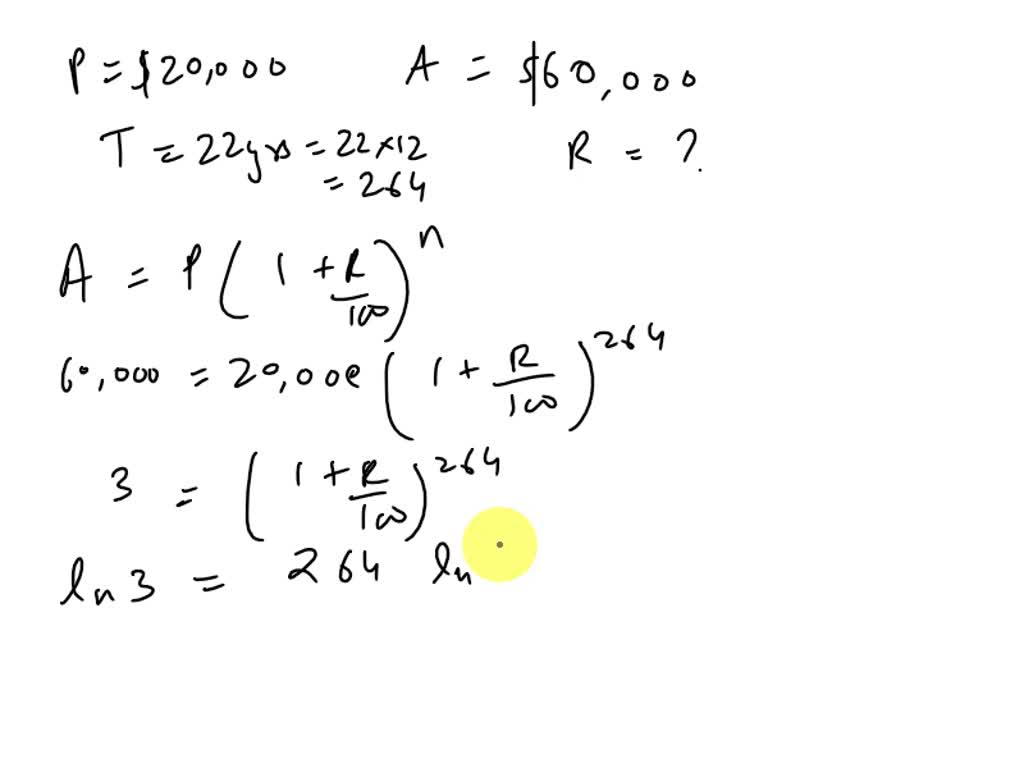 P = $20,000 A = $60,000
T = 22yrs = 22×12 R = ?
= 264
A = P(1 + R/100)^n
60,000 = 20,000(1 + R/100)^264
3 = (1 + R/100)^264
ln 3 = 264 ln